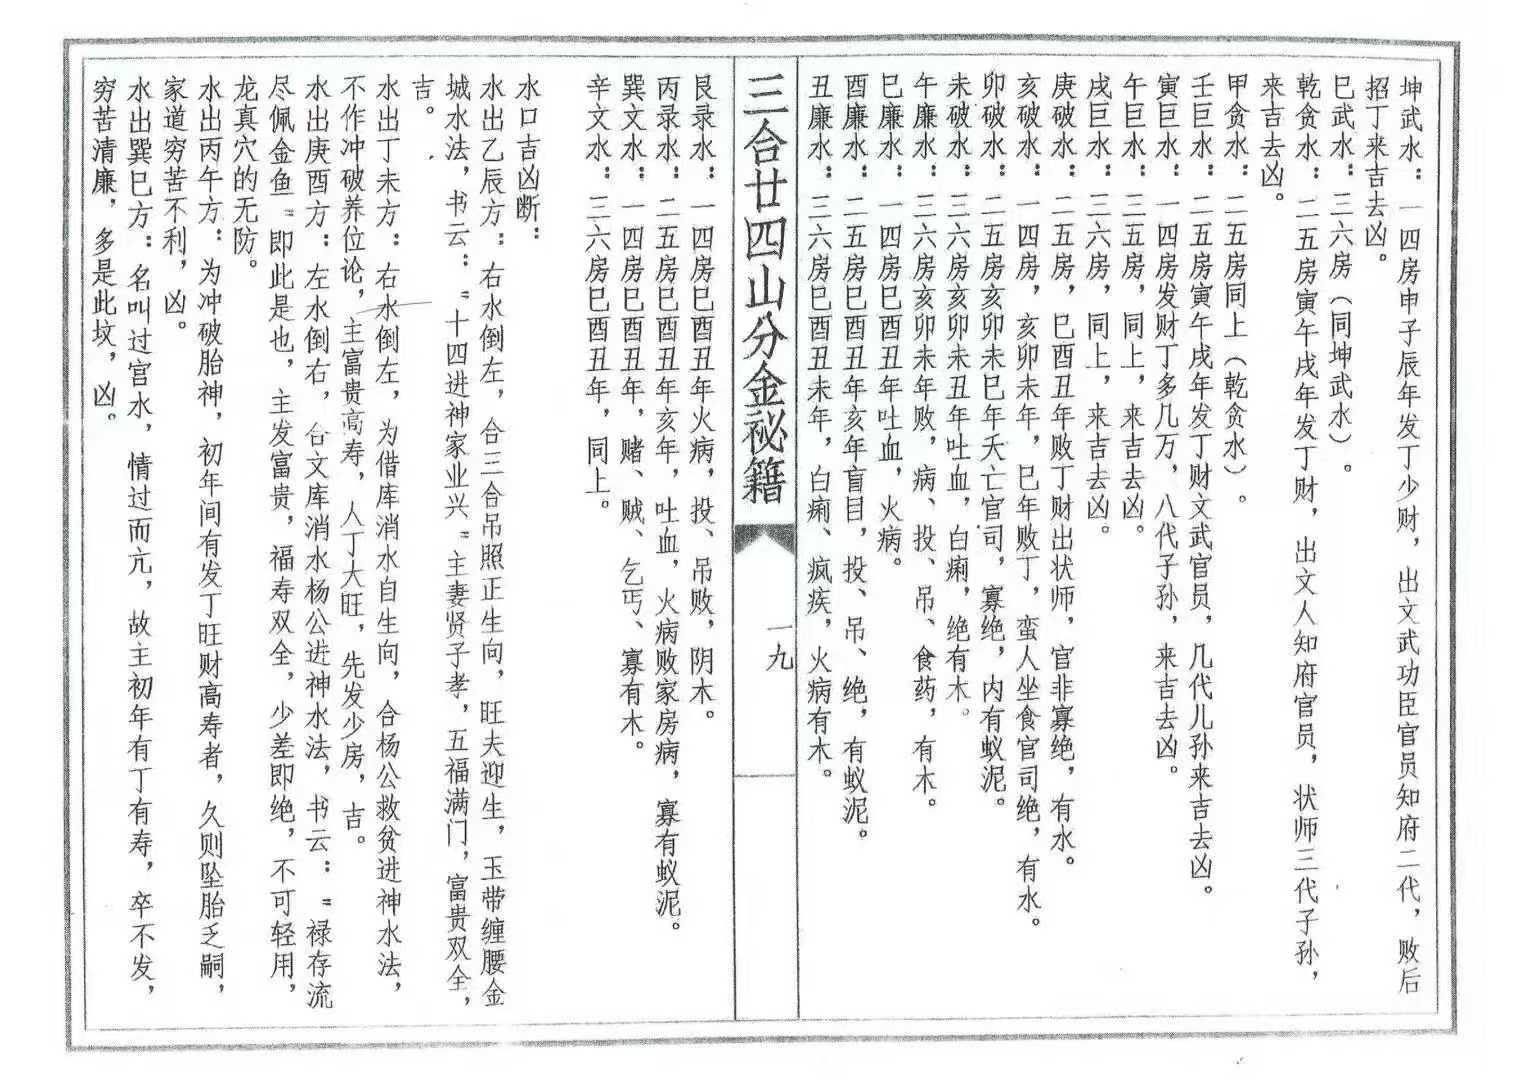 坤武水：一四房申子辰年发丁少财，出文武功臣官员知府二代，败后
招丁来吉去凶。
巳武水：三六房（同坤武水）。
乾贪水：二五房寅午戌年发丁财，出文人知府官员，状师三代子孙，
来吉去凶。
甲贪水：二五房同上（乾贪水）。
壬巨水：二五房寅午戌年发丁财文武官员，几代儿孙来吉去凶。
寅巨水：一四房发财丁多几万，八代子孙，来吉去凶。
午巨水：三五房，同上，来吉去凶。
戌巨水：三六房，同上，来吉去凶。
庚破水：二五房，巳酉丑年败丁财出状师，官非寡绝，有水。
亥破水：一四房，亥卯未年，巳年败丁，蛮人坐食官司绝，有水。
卯破水：二五房亥卯未巳年夭亡官司，寡绝，内有蚁泥。
未破水：三六房亥卯未丑年吐血，白痢，绝有木。
午廉水：三六房亥卯未年败，病、投、吊、食药，有木。
巳廉水：一四房巳酉丑年吐血，火病。
酉廉水：二五房巳酉丑年亥年盲目，投、吊、绝，有蚁泥。
丑廉水：三六房巳酉丑未年，白痢、疯疾，火病有木。
三合廿四山分金祕籍
一九
艮录水：一四房巳酉丑年火病，投、吊败，阴木。
丙录水：二五房巳酉丑年亥年，吐血，火病败家房病，寡有蚁泥。
巽文水：一四房巳酉丑年，赌、贼、乞丐、寡有木。
辛文水：三六房巳酉丑年，同上。
水口吉凶断：
水出乙辰方：右水倒左，合三合吊照正生向，旺夫迎生，玉带缠腰金
城水法，书云："十四进神家业兴"主妻贤子孝，五福满门，富贵双全，
吉。
水出丁未方：右水倒左，为借库消水自生向，合杨公救贫进神水法，
不作冲破养位论，主富贵高寿，人丁大旺，先发少房，吉。
水出庚酉方：左水倒右，合文库消水杨公进神水法，书云："禄存流
尽佩金鱼"即此是也，主发富贵，福寿双全，少差即绝，不可轻用，
龙真穴的无防。
水出丙午方：为冲破胎神，初年间有发丁旺财高寿者，久则坠胎乏嗣，
家道穷苦不利，凶。
水出巽巳方：名叫过宫水，情过而亢，故主初年有丁有寿，卒不发，
穷苦清廉，多是此坟，凶。